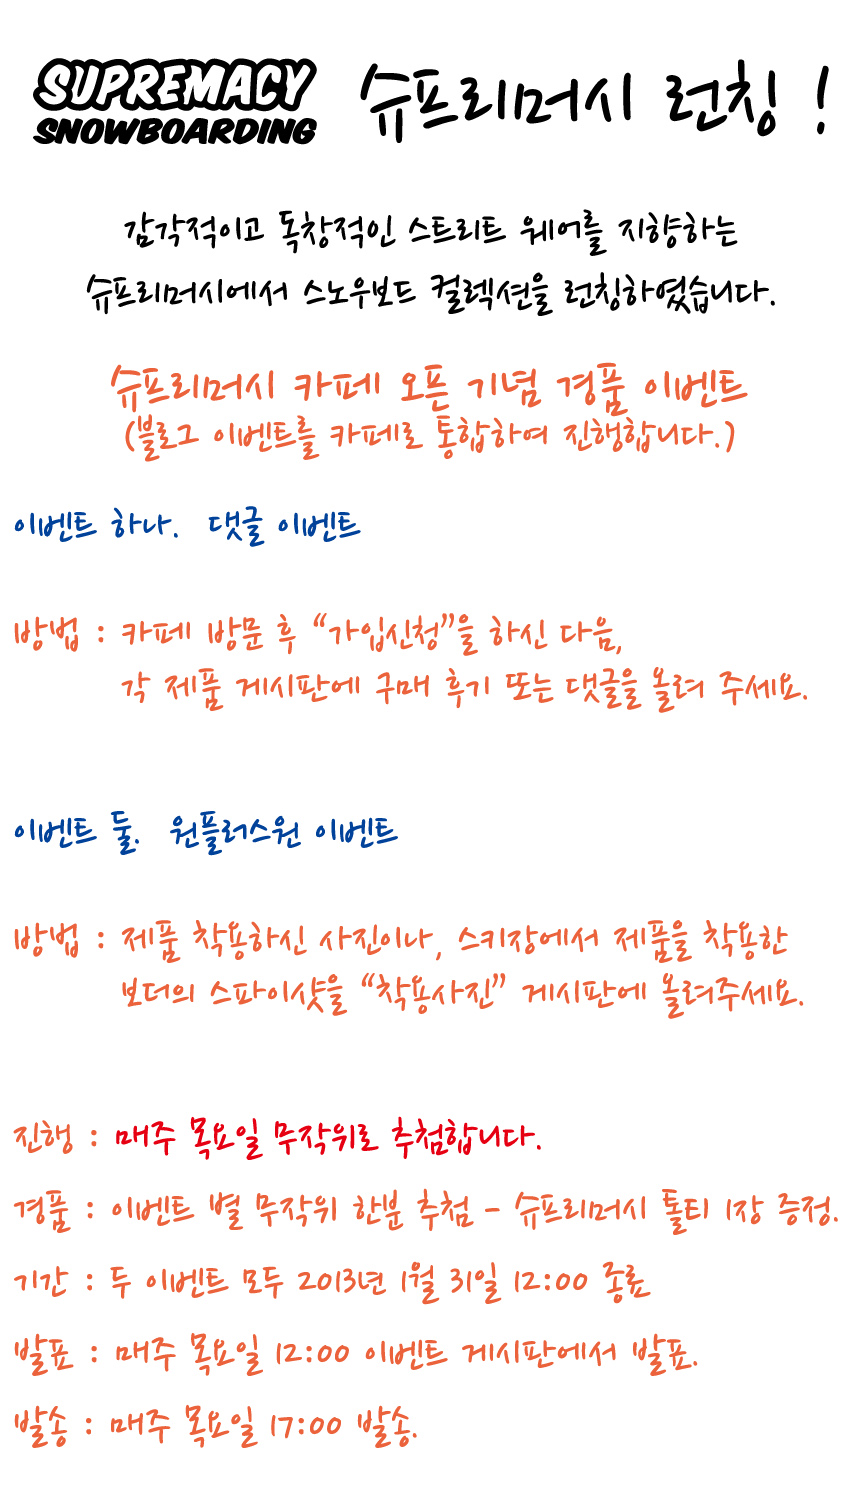 SUPREMACY
SNOWBOARDING
슈프리머시 런칭 !
감각적이고 독창적인 스트리트 웨어를 지향하는
슈프리머시에서 스노우보드 컬렉션을 런칭하였습니다.
슈프리머시 카페 오픈 기념 경품 이벤트
(블로그 이벤트를 카페로 통합하여 진행합니다.)
이벤트 하나. 댓글 이벤트
방법 : 카페 방문 후 “가입신청”을 하신 다음,
각 제품 게시판에 구매 후기 또는 댓글을 올려 주세요.
이벤트 둘. 원플러스원 이벤트
방법 : 제품 착용하신 사진이나, 스키장에서 제품을 착용한
보더의 스파이샷을 “착용사진” 게시판에 올려주세요.
진행 : 매주 목요일 무작위로 추첨합니다.
경품 : 이벤트 별 무작위 한분 추첨 - 슈프리머시 톨티 1장 증정.
기간 : 두 이벤트 모두 2013년 1월 31일 12:00 종료
발표 : 매주 목요일 12:00 이벤트 게시판에서 발표.
발송 : 매주 목요일 17:00 발송.